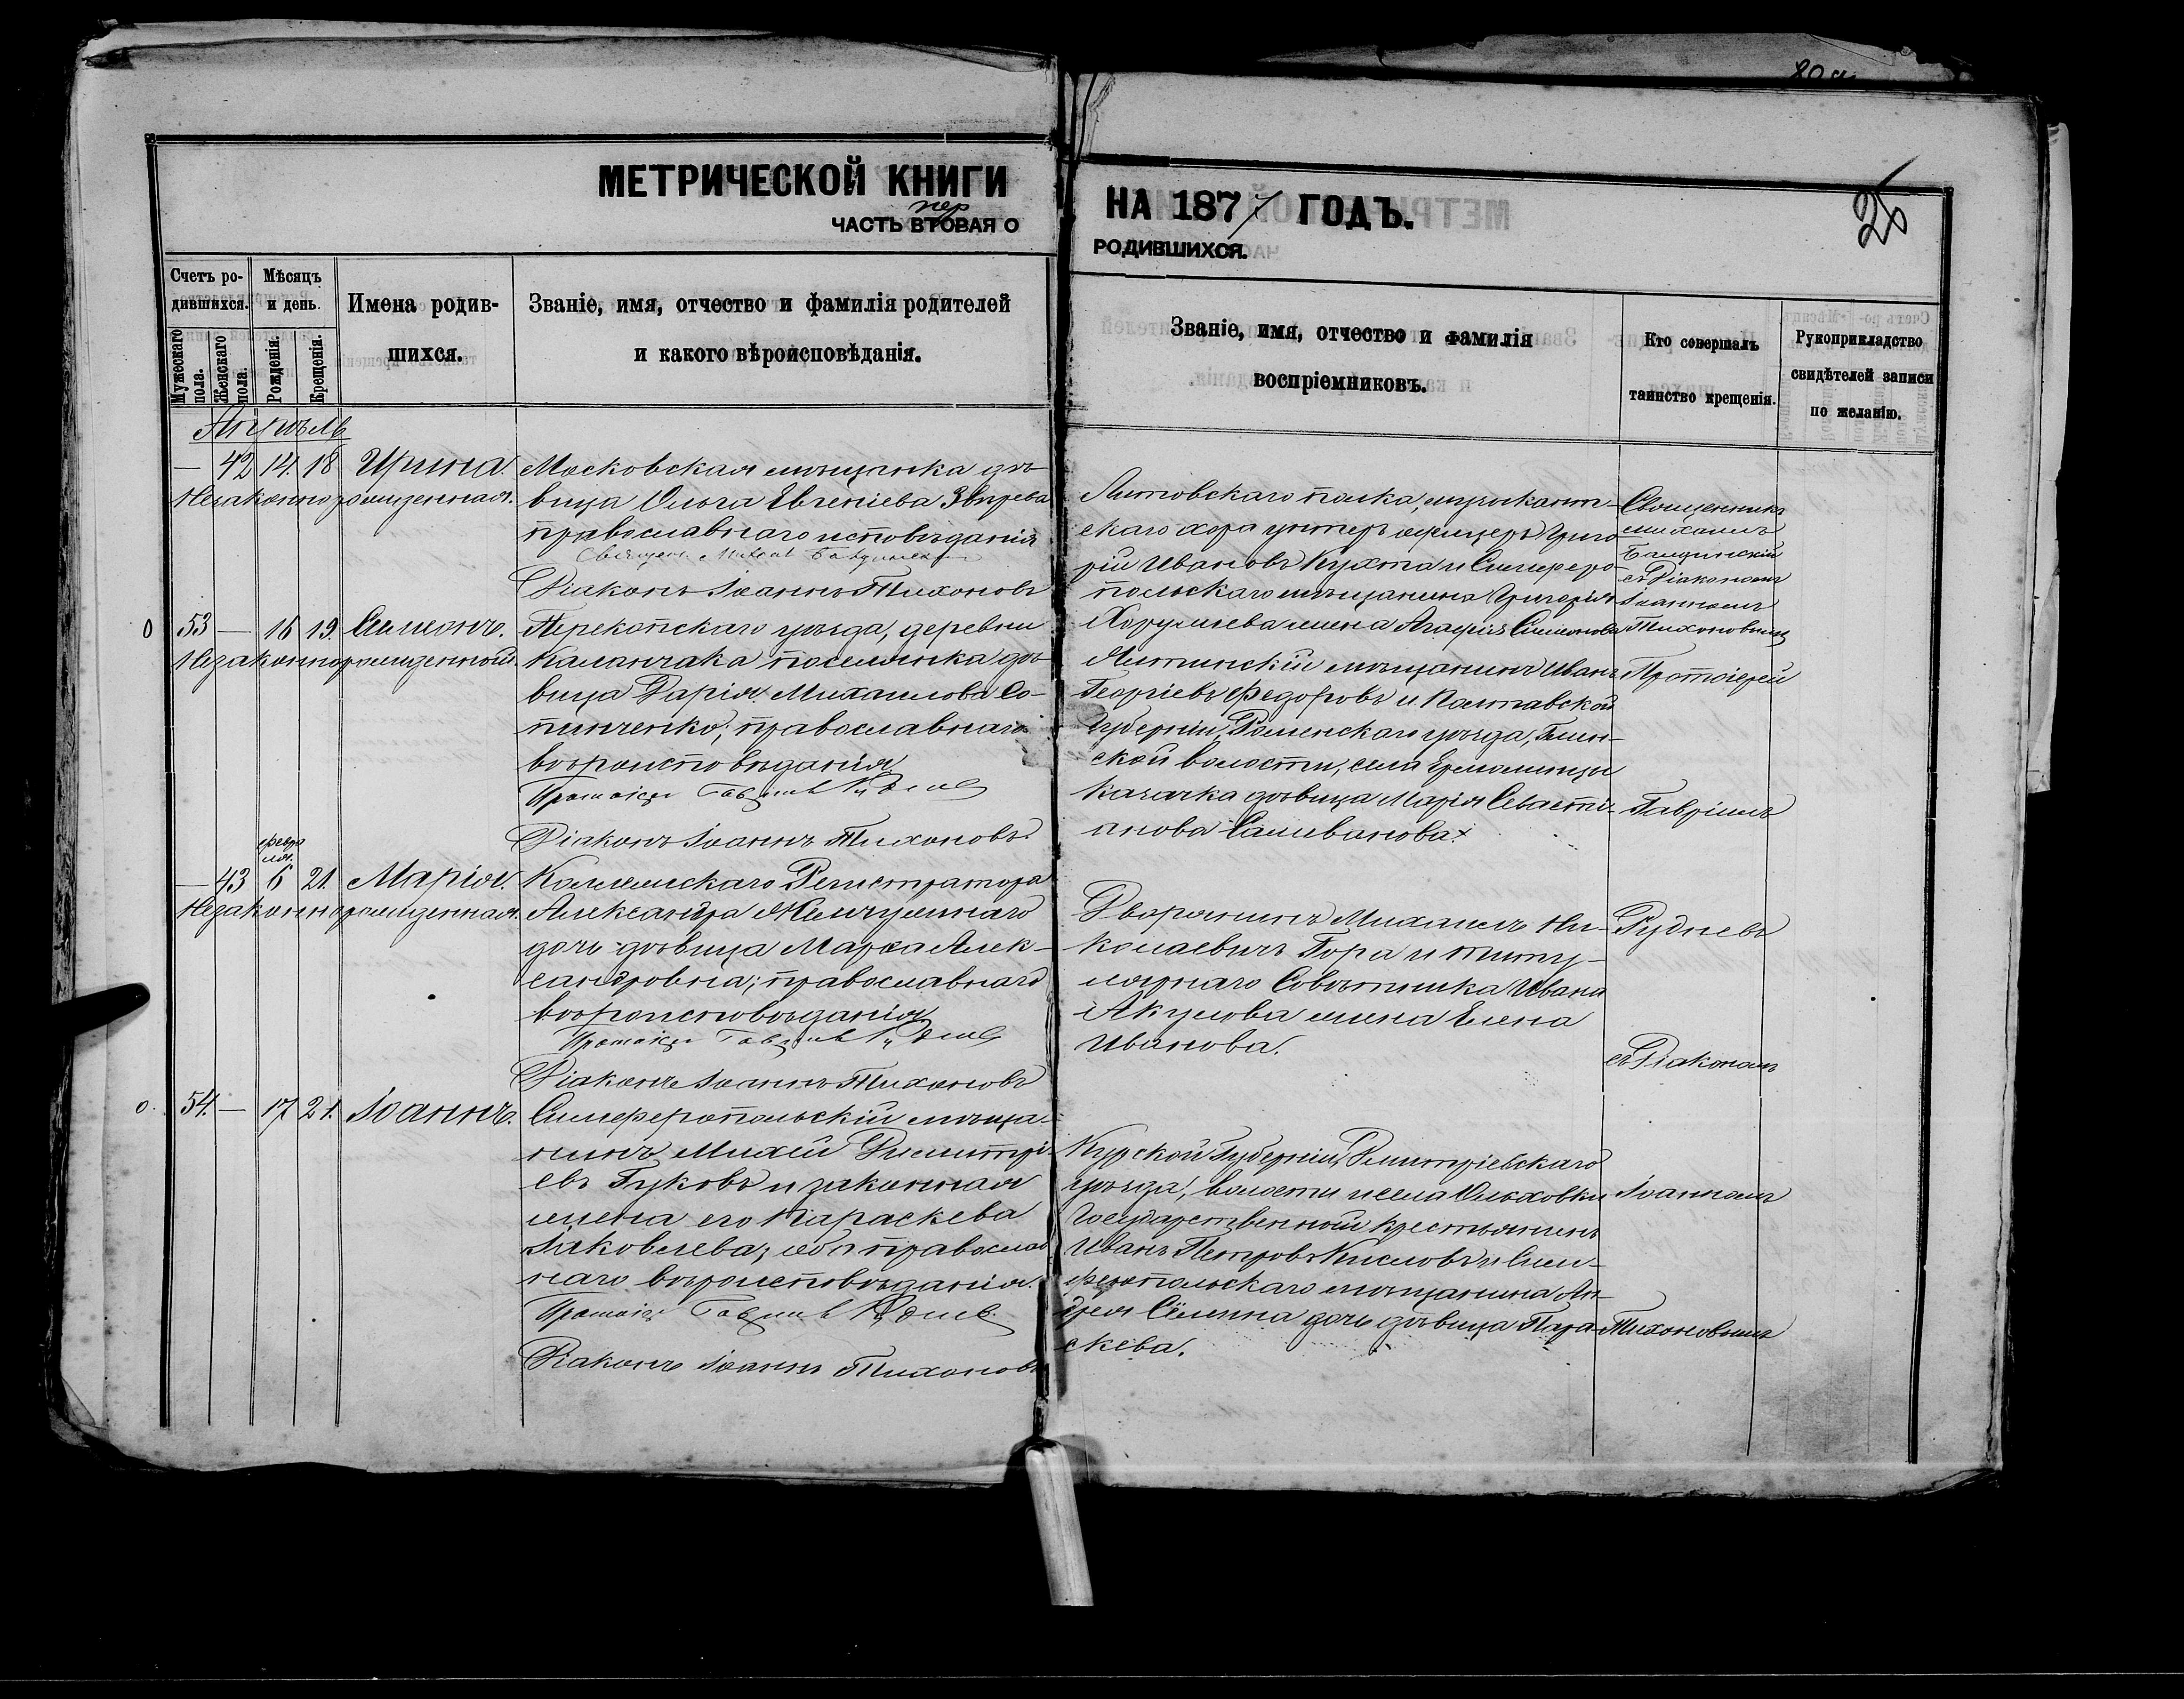 80 а
МЕТРИЧЕСКОЙ КНИГИ
НА 1877 ГОДЪ.
25
пер
ЧАСТЬ ВТОРАЯ О
РОДИВШИХСЯ.
Счетъ родившихся.
Мужескаго пола.
Женскаго пола.
Мѣсяцъ и день.
Рожденія.
Крещенія.
Имена родившихся.
Званіе, имя, отчество и фамилія родителей
и какого вѣроисповѣданія.
Званіе, имя, отчество и фамилія
воспріемниковъ.
Кто совершалъ
таинство крещенія.
Рукоприкладство
свидѣтелей записи
по желанію.
Апрѣль
— 42 14. 18 Ирина.
Незаконнорожденная.
Московская мѣщанка дѣ-
вица Ольга Евгеніева Звѣрева
православнаго исповѣданія
Священ. Михаилъ
Діаконъ Іоаннъ Тихоновъ
Литовскаго полка, музыкант-
скаго хора унтеръ офицеръ Григо-
рій Ивановъ Кухта и Симферо-
польскаго мѣщанина Григорія
жена Агафія Симеонова
Священникъ
Михаилъ
съ Діакономъ
Іоанномъ
Тихоновымъ
0 53 — 16 19. Симеонъ.
Незаконнорожденный.
Перекопскаго уѣзда, деревни
Каланчака поселянка дѣ-
вица Дарія Михаилова Со-
пинченко; православнаго
вѣроисповѣданія
Протоіер Гавріилъ Рудневъ
Діаконъ Іоаннъ Тихоновъ.
Мѣщанинъ Иванъ
Георгіевъ Федоровъ и Полтавской
Губерніи, Роменскаго уѣзда, Глин-
ской волости, села
казачка дѣвица Марія Севасті-
анова Саливанова.
Протоіерей
Гавріилъ
февра
ля.
— 43 6 21. Марія.
Незаконнорожденная.
Коллежскаго Регистратора
Александра Жемчужнаго
дочь дѣвица Марѳа Алек-
сандровна; православнаго
вѣроисповѣданія
Протоіер Гавріилъ Рудневъ
Діаконъ Іоаннъ Тихоновъ
Дворянинъ Михаилъ Ни-
колаевичъ Гора и титу-
лярнаго Совѣтника Ивана
Акулова жена Елена
Иванова.
Рудневъ
съ Діакономъ
0. 54. — 17 21. Іоаннъ.
Симферопольскій мѣща-
нинъ Михей Димитрі-
евъ Гуковъ и законная
жена его Параскева
Яковлева; оба православ
наго вѣроисповѣданія.
Протоіер Гавріилъ Рудневъ
Діаконъ Іоаннъ Тихоновъ
Курской Губерніи, Дмитріевскаго
уѣзда, волости и села Ольховки
Государственный крестьянинъ
Иванъ Петровъ Кисловъ и Сим-
феропольскаго мѣщанина Ан-
дрея дочь дѣвица Пара-
скева.
Іоанномъ
Тихоновымъ